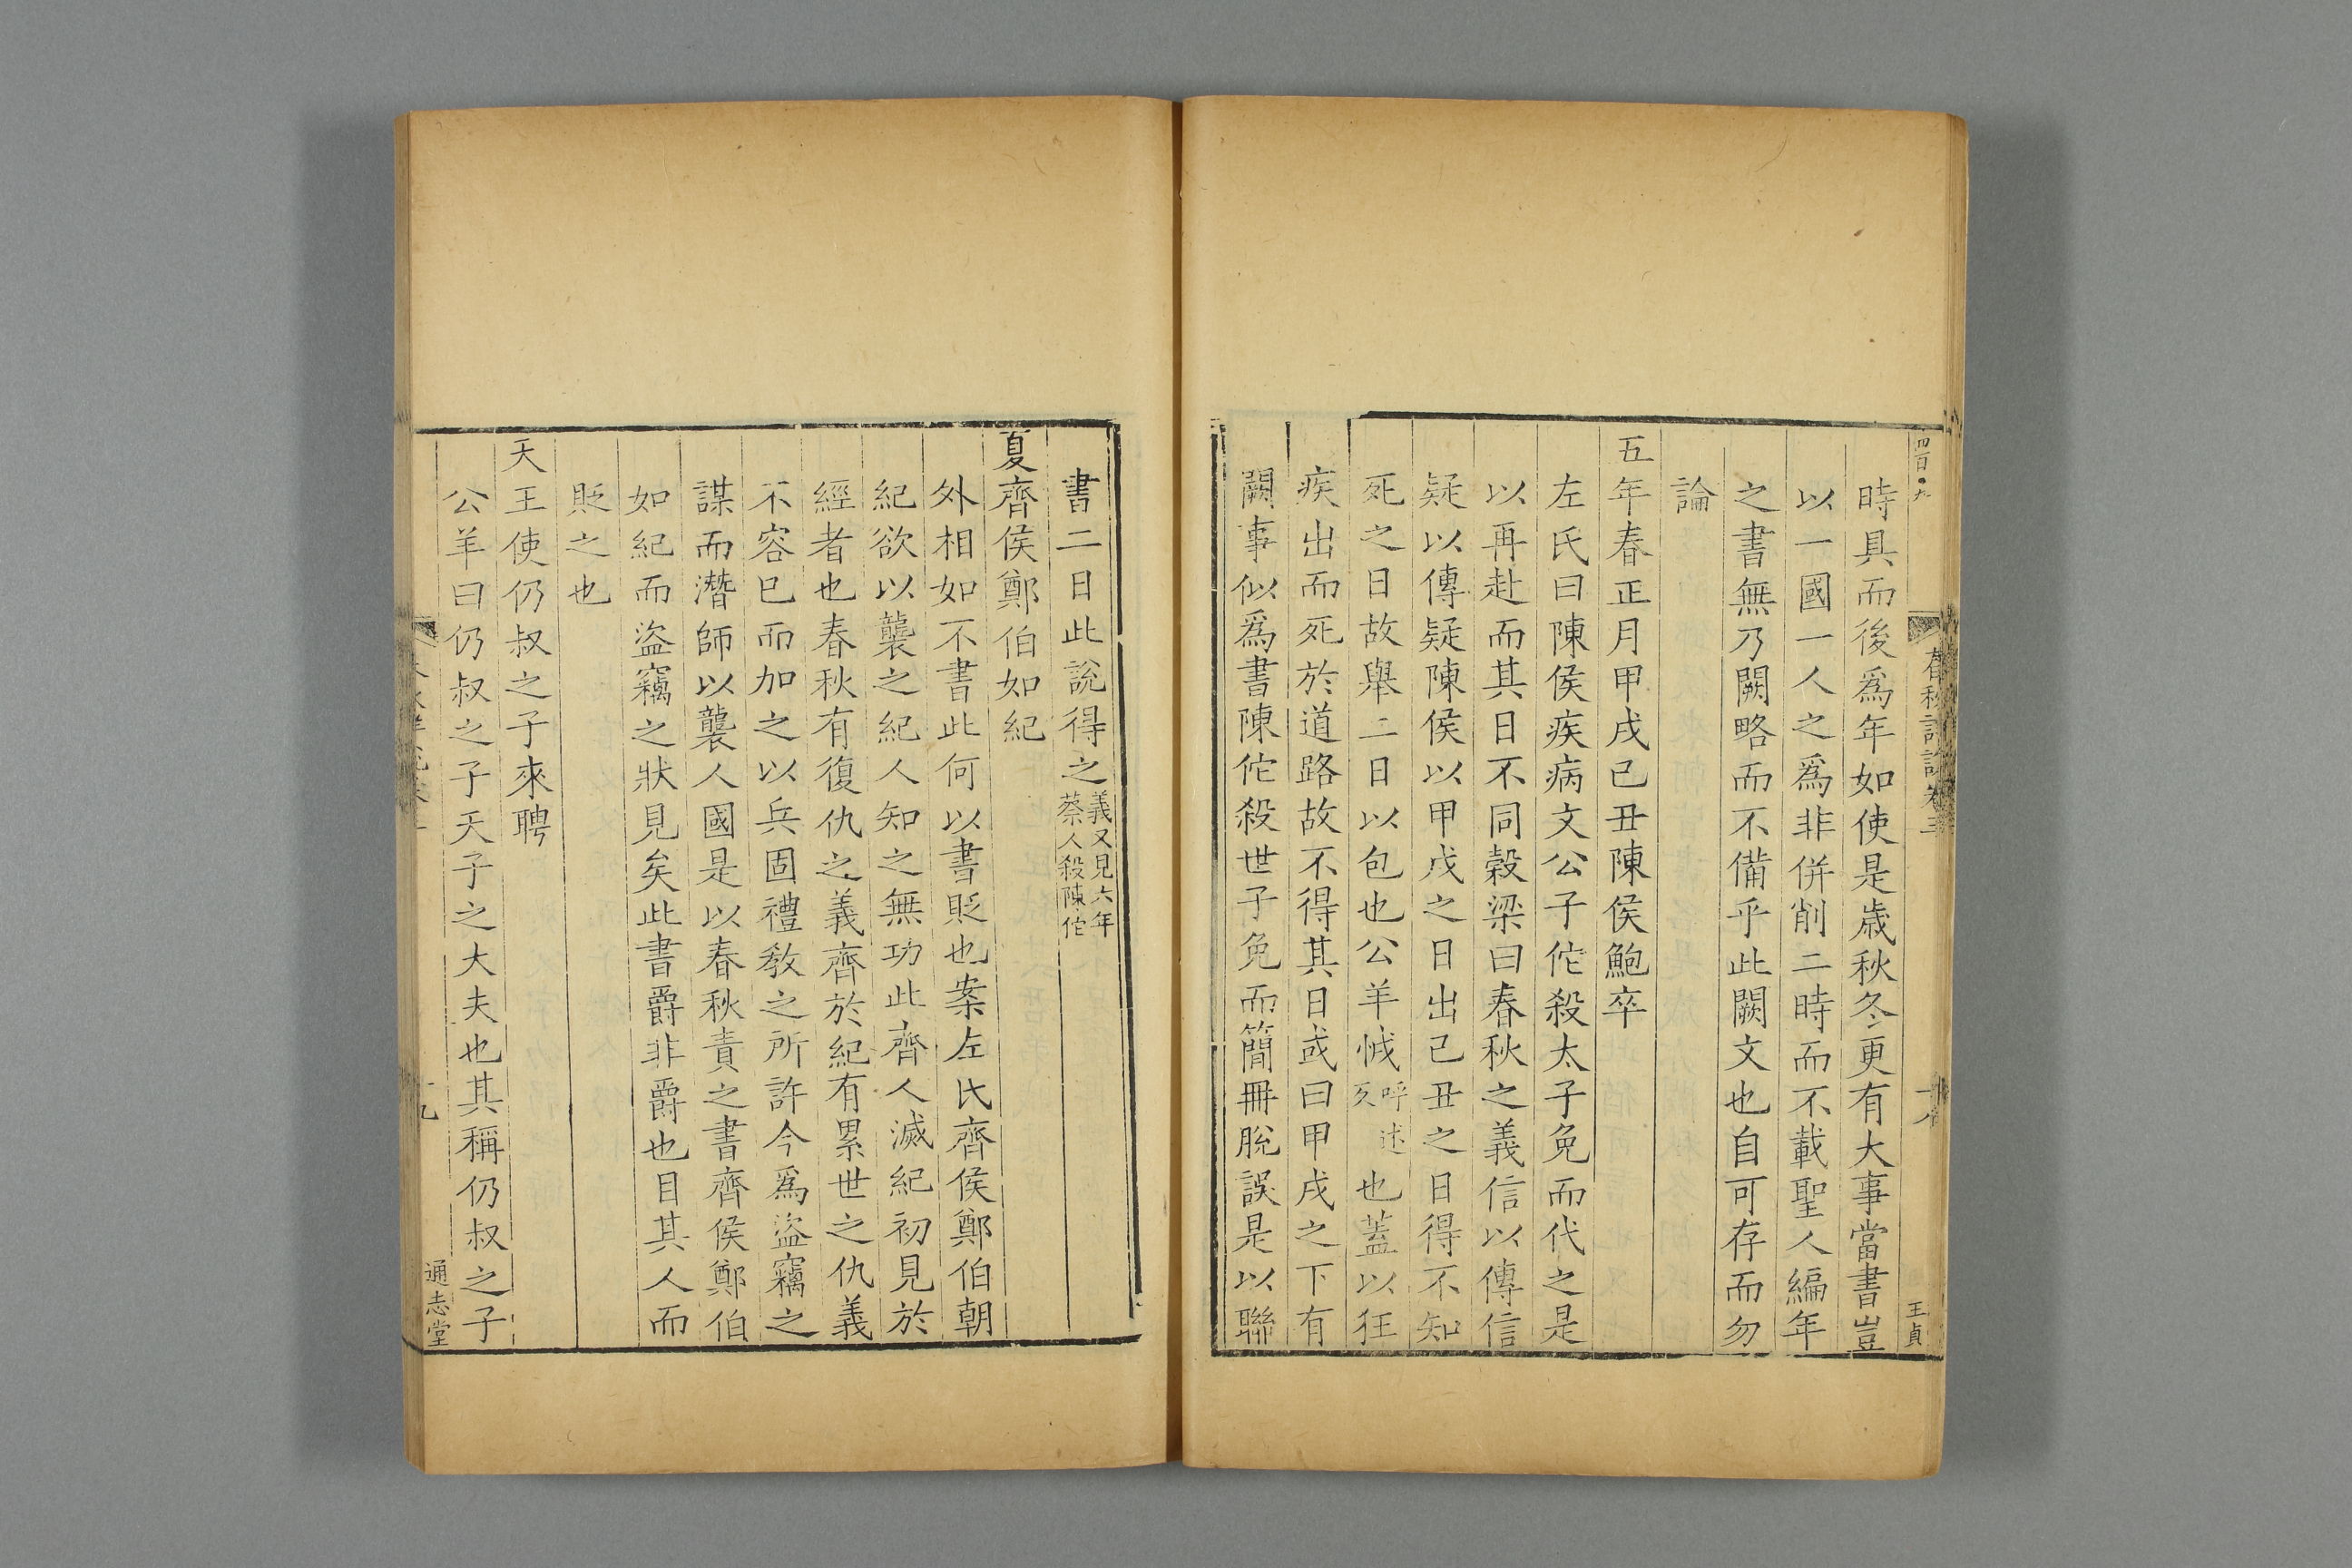 時具而後爲年如使是歳秋冬更有大事當書豈
以一國一人之爲非併削二時而不載聖人編年
之書無乃闕略而不備乎此闕文也自可存而勿
論
五年春正月甲戌己丑陳侯鮑卒
左氏曰陳侯疾病文公子佗殺太子免而代之是
以再赴而其日不同穀梁曰春秋之義信以傳信
疑以傳疑陳侯以甲戌之日出己丑之日得不知
死之日故舉二日以包也公羊㤜呼述反也蓋以狂
疾出而死於道路故不得其日或曰甲戌之下有
闕事似爲書陳佗殺世子免而簡冊脫誤是以聯
王貞
書二日此說得之義又見六年蔡人殺陳佗
夏齊侯鄭伯如紀
外相如不書此何以書貶也案左氏齊侯鄭伯朝
紀欲以襲之紀人知之無功此齊人滅紀初見於
經者也春秋有復仇之義齊於紀有累世之仇義
不容已而加之以兵固禮教之所許今爲盜竊之
謀而潛師以襲人國是以春秋責之書齊侯鄭伯
如紀而盜竊之狀見矣此書爵非爵也目其人而
貶之也
天王使仍叔之子來聘
公羊曰仍叔之子天子之大夫也其稱仍叔之子
通志堂